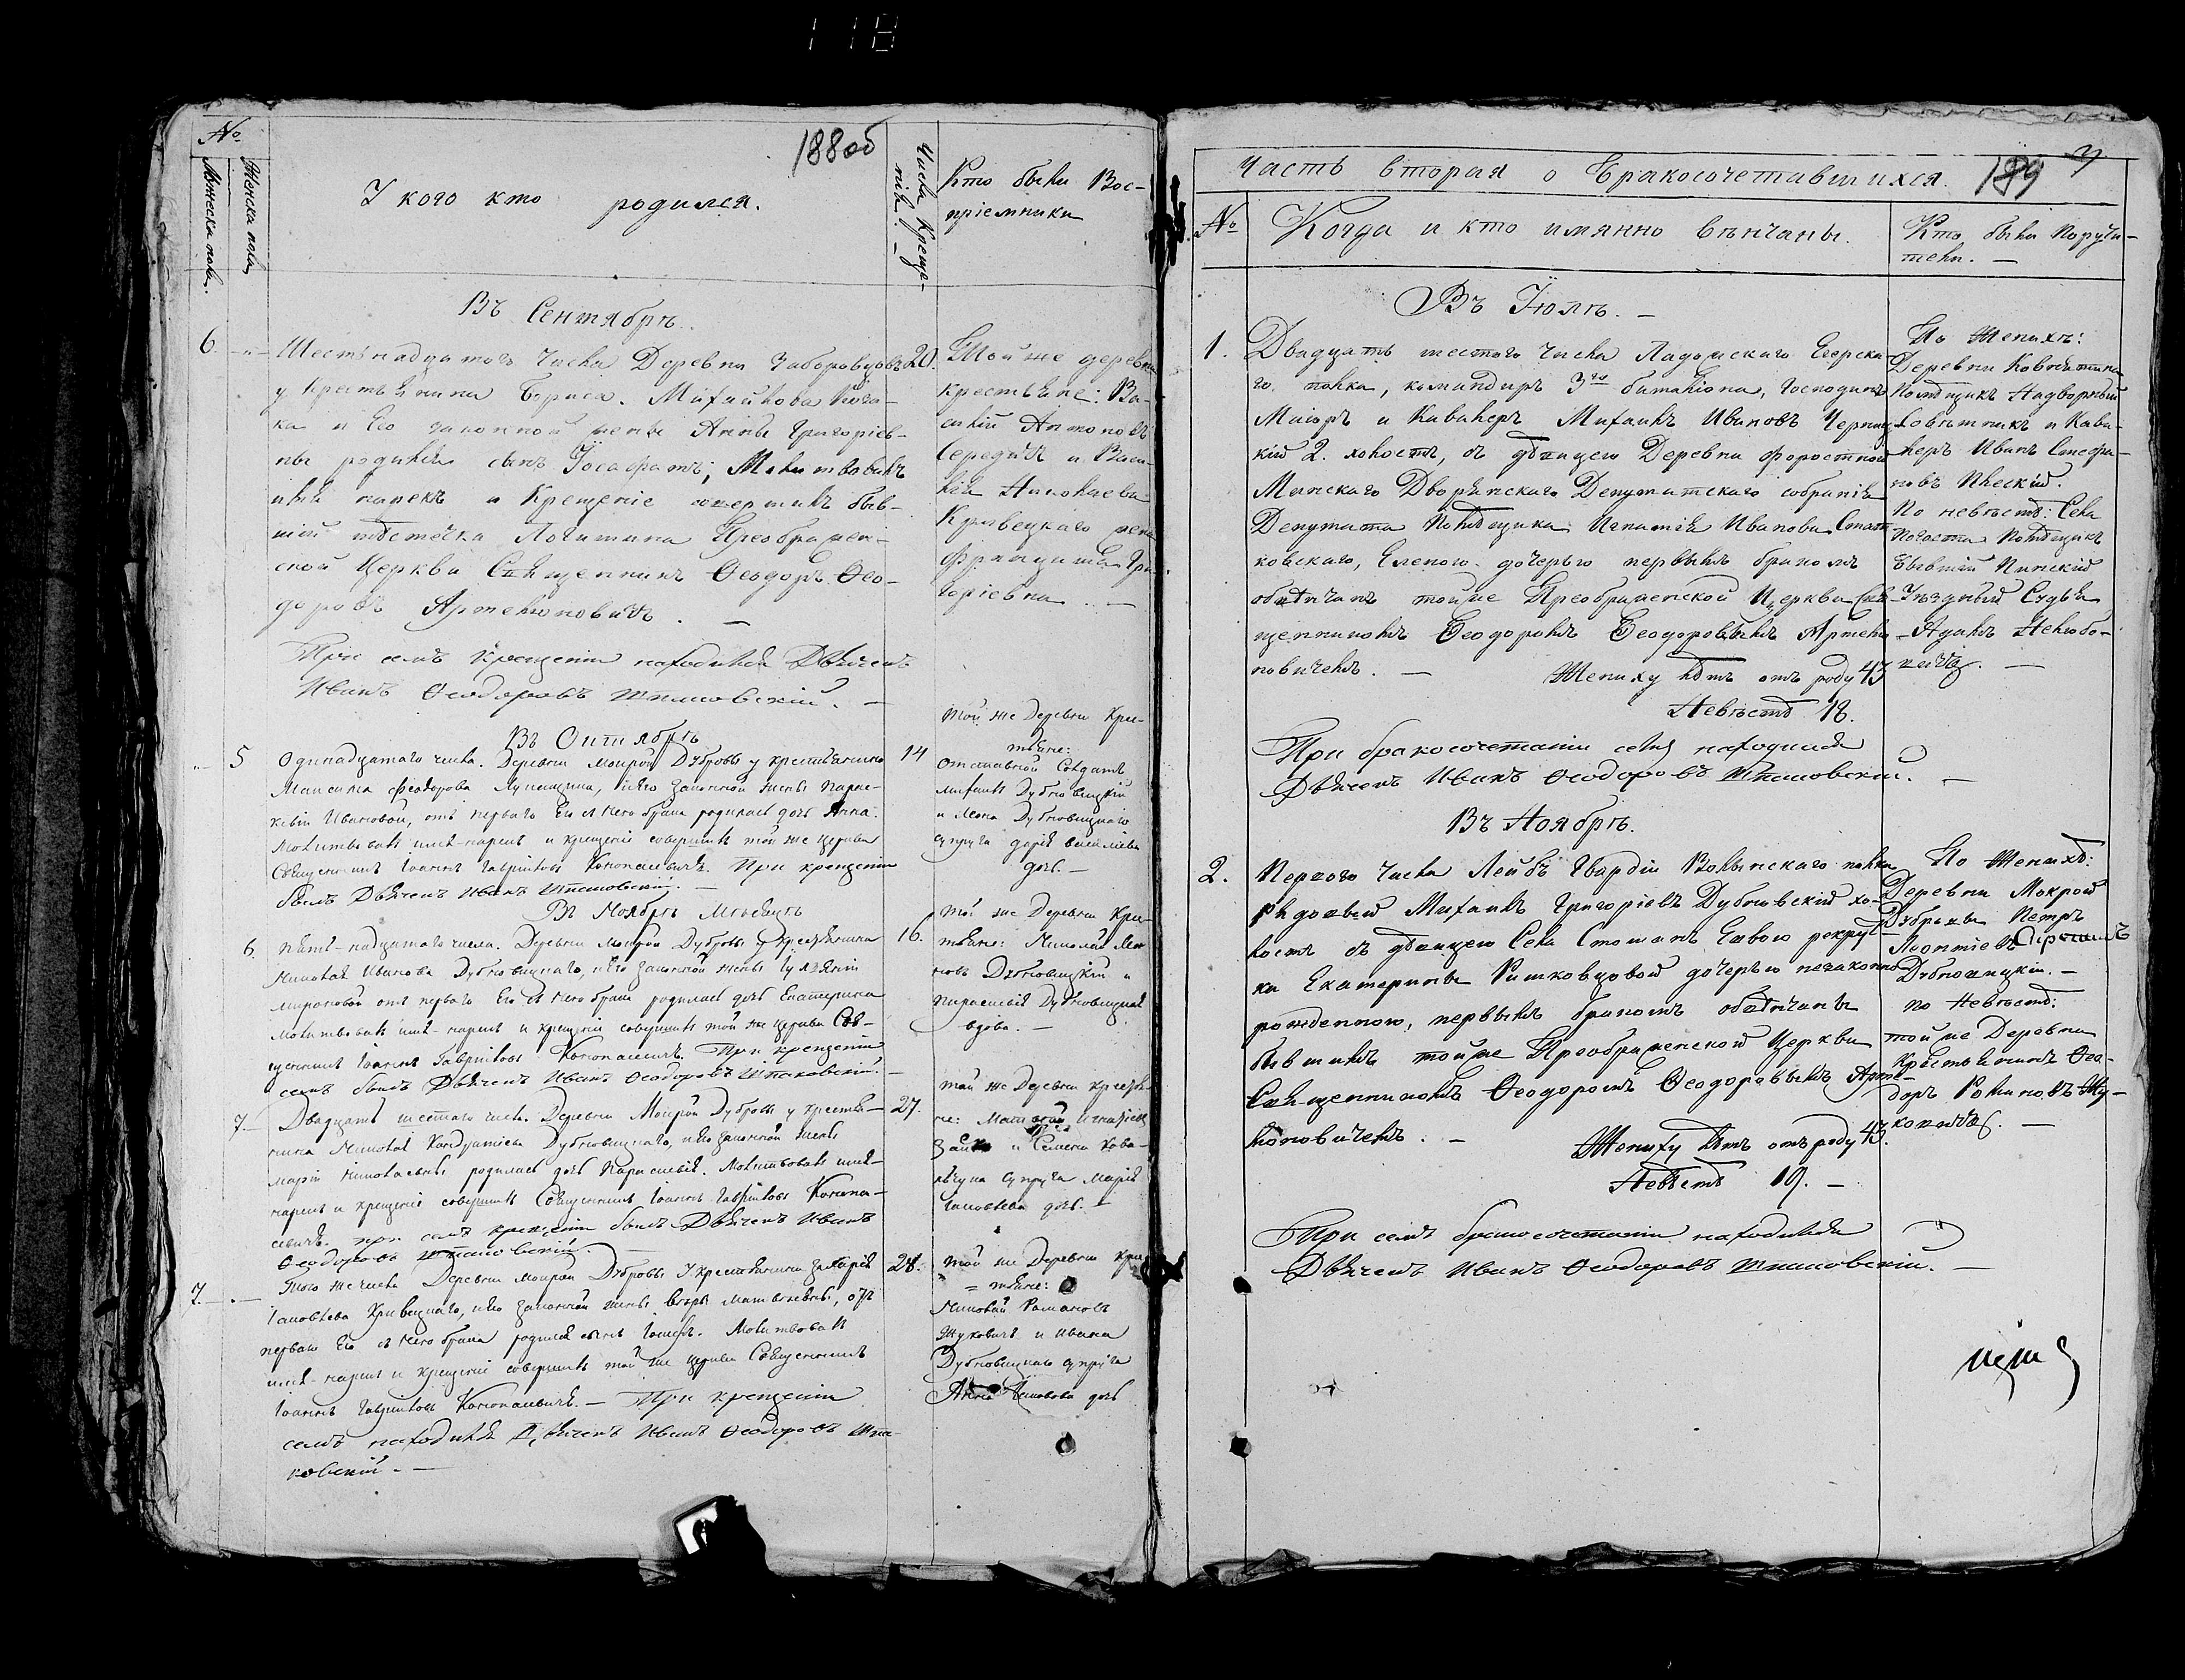 118
№
Мужеска пола.
Женска пола,
188 об
У кого кто родился.
Числа Креще-
нія. —
Кто были Вос-
пріемники
Въ Сентябрѣ.
6. Шестьнадцатого числа Деревни Заборовцовъ 20.
у Крестьянина Бориса Михайлова
ка и Его законной жены Анны Григоріев-
ны родился сынъ Іосафатъ; Молитвовалъ
имя нарекъ и Крещеніе совершилъ быв-
шій мѣстечка Логишина Преображен-
ской Церкви Священникъ Ѳеодоръ Ѳео-
доровъ Артемоновичъ. —
При семъ Крещеніи находился Дьячекъ
Иванъ Ѳеодоровъ Шпаковскій. —
Той же деревни
крестьяне: Ва-
силій Антоновъ
Середичъ и Васи-
лія Николаева
Кривецкаго жена
Францишка Гри-
горіевна. —
Въ Октябрѣ
5 Одинадцатого числа. Деревни Мокрой Дубровы у крестьянина 14
Максима Феодорова Лунащика, и Его законной жены Параскевіи
Ивановой, отъ перваго Ею съ Него брака родилась дочь Анна.
Молитвовалъ имя-нарекъ и крещеніе совершилъ той же церкви
Священникъ Іоаннъ Гавріиловъ Конопасевичъ. При крещеніи
былъ Дьячекъ Иванъ Шпаковскій. —
Той же Деревни Кре-
тьяне:
отставной Солдатъ
Михаилъ Дубновицкій
и Леона Дубновицкаго
супруга Дарія
дочь. —
Въ Ноябрѣ Мѣсяцѣ
6. Пять-надцатого числа. Деревни Мокрой Дубровы у Крестьянина 16.
Николая Иванова Дубновицкаго, и Его законной жены Іуліяніи
Мироновой отъ перваго Ею съ Него брака родилась дочь Екатерина
Молитвовалъ имя-нарекъ и крещеніе совершилъ той же церкви Свя-
щенникъ Іоаннъ Гавріиловъ Конопасевичъ. При крещеніи
семъ былъ Дьячекъ Иванъ Ѳеодоровъ Шпаковскій. —
Той же Деревни Кре-
тьяне: Николай Лео-
новъ Дубновицкій и
Параскевія Дубновицкая
вдова. —
7. Двадцать шестаго числа. Деревни Мокрой Дубровы у крестья- 27.
нина Николая Кондратіева Дубновицкаго, и Его законной жены
Маріи Николаевны родилась дочь Параскевія. Молитвовалъ имя-
нарекъ и крещеніе совершилъ Священникъ Іоаннъ Гавріиловъ Конопа-
севичъ. При семъ крещеніи былъ Дьячекъ Иванъ
Ѳеодоровъ Шпаковскій. —
Той же Деревни крестья-
не: Матвѣй Игнатіевъ
Заико и Семена Кова-
льчука супруга Марія
Іаковлева дочь. —
7. Того же числа Деревни Мокрой Дубровы у крестьянина Захарія 28.
Іаковлева Кривецкаго, и Его законной жены Вѣры Матвѣевны, отъ
перваго Ею съ Него брака родился сынъ Іосифъ. Молитвовалъ
имя-нарекъ и крещеніе совершилъ той же церкви Священникъ
Іоаннъ Гавріиловъ Конопасевичъ. — При крещеніи
семъ находился Дьячекъ Иванъ Ѳеодоровъ Шпа-
ковскій. —
Той же Деревни Крес-
тьяне:
Николай Романовъ
Жуковичъ и Ивана
Дубновицкаго супруга
Анна дочь
Часть вторая о бракосочетавшихся. 189
№
Когда и кто имянно вѣнчаны.
Кто были Поручи-
тели. —
Въ Іюлѣ. —
1. Двадцать шестого числа Ладожскаго Егерска-
го полка, командиръ 3го баталіона, Господинъ
Маіоръ и Кавалеръ Михаилъ Ивановъ Черниц-
кій 2. холостъ, съ дѣвицею Деревни Форостной
Минскаго Дворянскаго Депутатскаго собранія
Депутата Помѣщика Игнатія Иванова
ковскаго, Еленою дочерью первымъ бракомъ
обвѣнчанъ тойже Преображенской Церкви Свя-
щенникомъ Ѳеодоромъ Ѳеодоровымъ Артемо-
новичемъ. — Жениху лѣтъ отъ роду 43
Невѣстѣ 18.
При бракосочетаніи семъ находился
Дьячекъ Иванъ Ѳеодоровъ Шпаковскій. —
По Женихѣ:
Деревни Ковнятина
Помѣщикъ Надворный
Совѣтникъ и Кава-
леръ Иванъ Стефа-
новъ Плескій.
По невѣстѣ: Села
Погоста Помѣщикъ
бывшій Пинскій
Уѣздный Судья
Адамъ
Въ Ноябрѣ.
2. Перваго числа Лейбъ Гвардіи Волынскаго полка
рядовый Михаилъ Григоріевъ Дубновскій хо-
лостъ съ дѣвицею Села Стошанъ Бывою рекрут-
ка Екатерины Рашковцовой дочерью незаконно
рожденною, первымъ бракомъ обвѣнчаны
бывшимъ тойже Преображенской Церкви
Священникомъ Ѳеодоромъ Ѳеодоровымъ Арте-
моновичемъ. — Жениху лѣтъ отъ роду 43.
Невѣстѣ 19. —
При семъ бракосочетаніи находился
Дьячекъ Иванъ Ѳеодоровъ Шпаковскій. —
По Женихѣ:
Деревни Мокрой
Дубровы Петръ
Леонтіевъ
Дубновицкій. —
по Невѣстѣ:
тойже Деревни
Крестьянинъ Ѳео-
доръ Романовъ Жу-
ковичъ. —